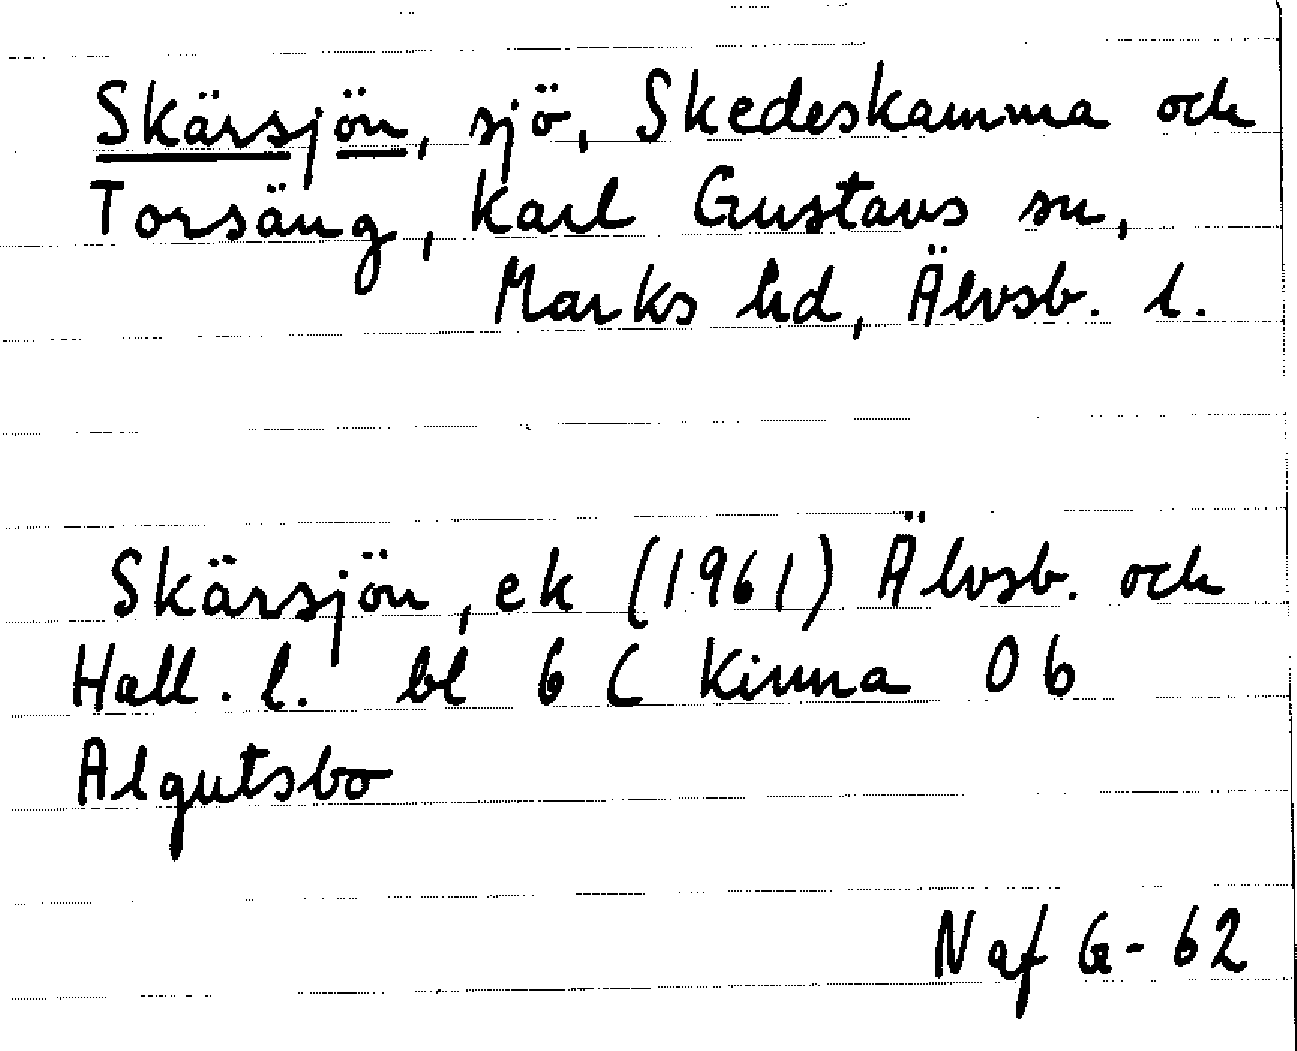 Skärsjön, sjö, Skedeskamma och
Torsäng, Karl Gustavs sn,
Marks hd, Älvsb. l.
Skärsjön, ek (1961) Älvsb. och
Hall. l. bl 6 C Kinna 0 b
Algutsbo
Naf G-62